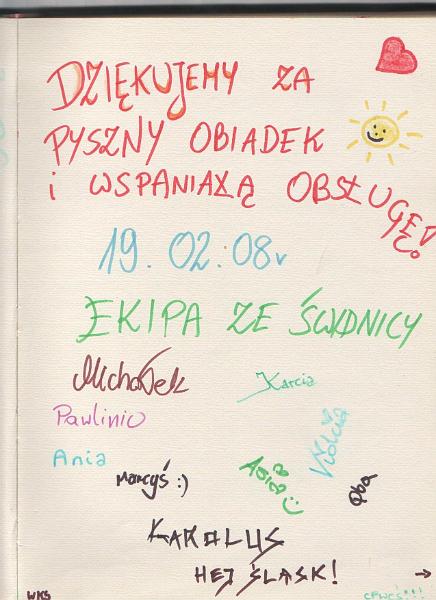 DZIĘKUJEMY ZA
PYSZNY OBIADEK
i WSPANIAŁĄ OBSŁUGĘ!
19.02.08r
EKIPA ZE ŚWIDNICY
Michałek
Karcia
Pawlinio
Violcia
Ania
Marcyś :)
Agia
Qba
KAROLUS
HEJ ŚLĄSK!
WKS